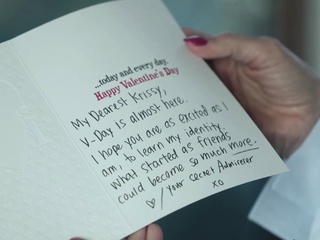 ...today and every day.
Happy Valentine's Day
My Dearest Krissy,
V-Day is almost here.
I hope you are as excited as I
am, to learn my identity.
What started as friends
could become so much more.
♡/ Your Secret Admirerer
xo